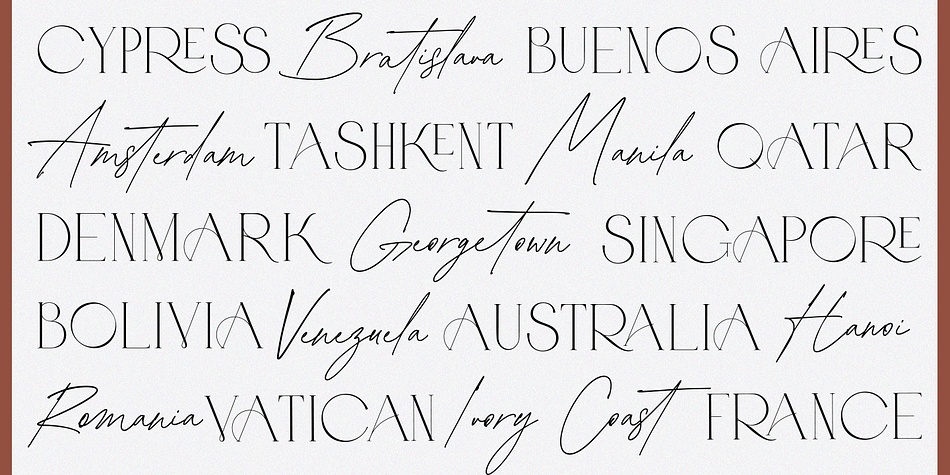 CYPRESS Bratislava BUENOS AIRES
Amsterdam TASHKENT Manila QATAR
DENMARK Georgetown SINGAPORE
BOLIVIA Venezuela AUSTRALIA Hanoi
Romania VATICAN Ivory Coast FRANCE